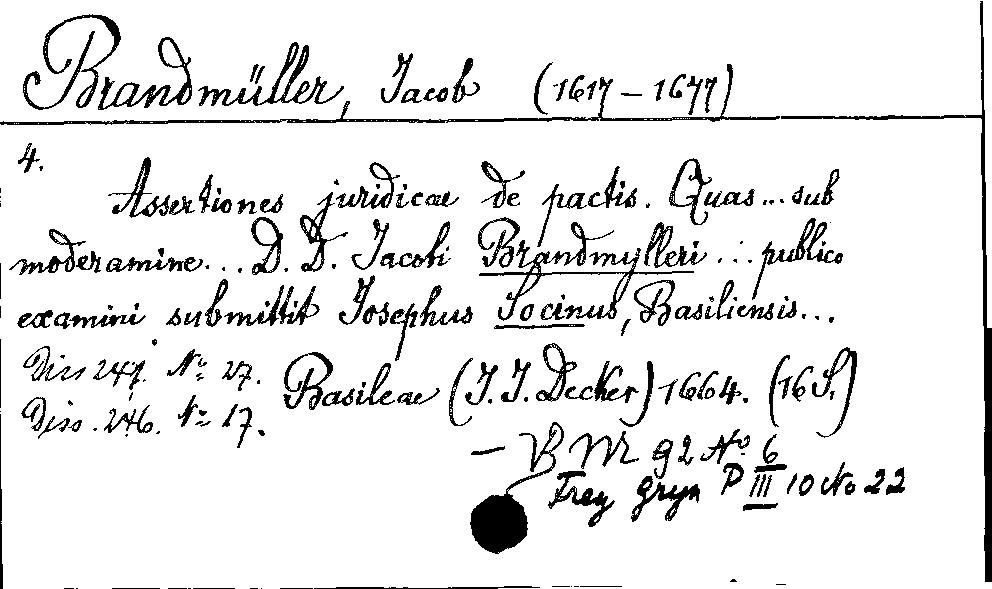 Brandmüller, Jacob (1617 – 1677)
4.
Assertiones juridicae de pactis. Quas... sub
moderamine... D. D. Jacobi Brandmylleri ... publico
examini submittit Josephus Socinus, Basiliensis...
Diss 247. No 27.
Basileae (J. J. Decker) 1664. (16 S.)
Diss. 246. No 17.
– B Wr 92 No 6
Frey Gryn P III 10 No 22